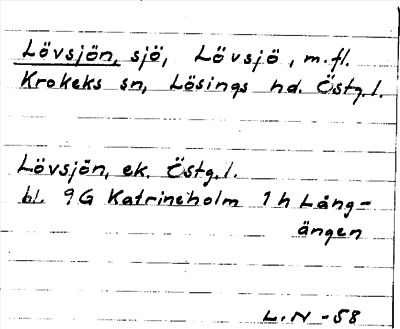 Lövsjön, sjö, Lövsjö, m.fl.
Krokeks sn, Lösings hd. Östg.l.
Lövsjön, ek. Östg.l.
bl. 9G Katrineholm 1h Lång-
ängen
L.N -58